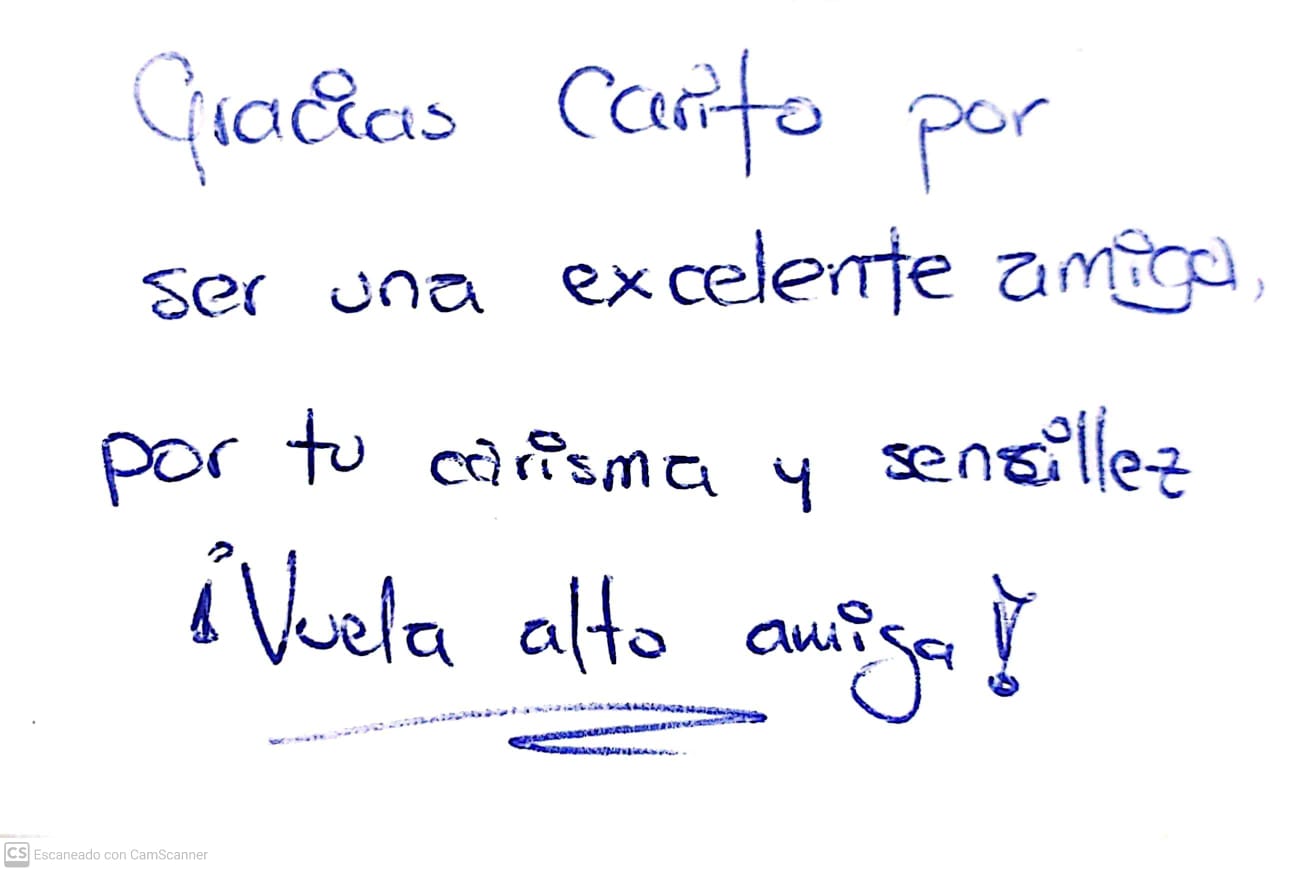 Gracias Carito por
ser una excelente amiga,
por tu carisma y sensillez
¡Vuela alto amiga!
CS Escaneado con CamScanner